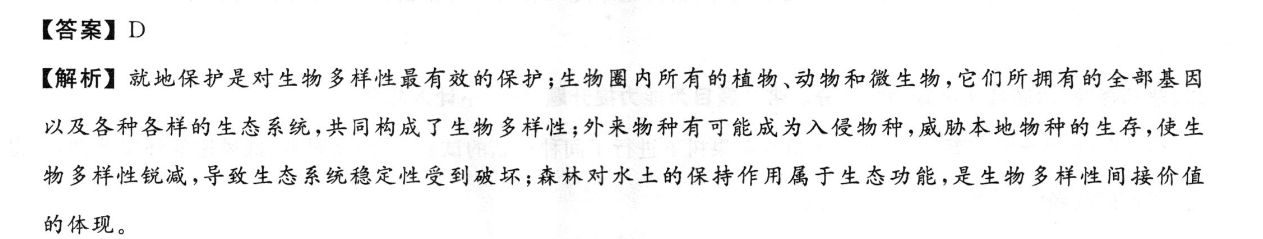 【答案】D
【解析】就地保护是对生物多样性最有效的保护;生物圈内所有的植物、动物和微生物,它们所拥有的全部基因
以及各种各样的生态系统,共同构成了生物多样性;外来物种有可能成为入侵物种,威胁本地物种的生存,使生
物多样性锐减,导致生态系统稳定性受到破坏;森林对水土的保持作用属于生态功能,是生物多样性间接价值
的体现。